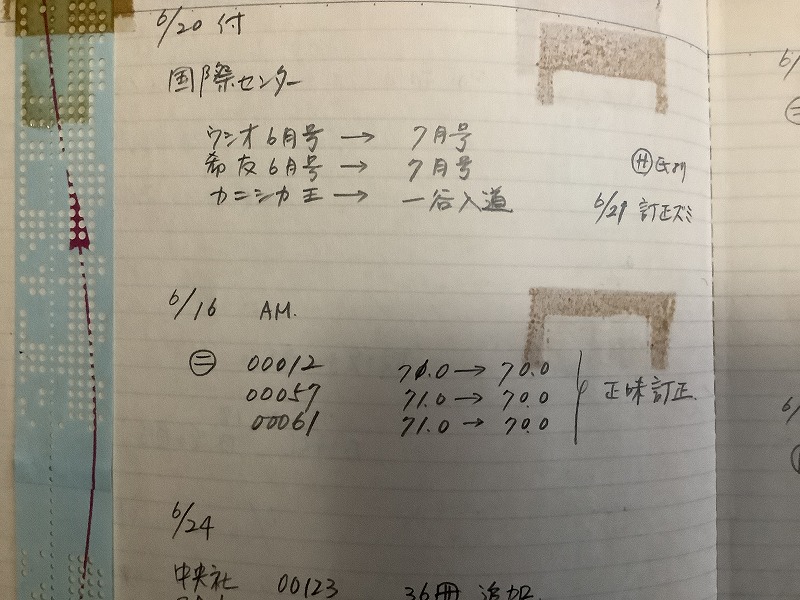 6/20 付
国際センター
ウシオ 6月号 → 7月号
希友 6月号 → 7月号
カニシカ王 → 一谷入道
サ
6/29 訂正ズミ
6/16 AM.
ニ 00012 70.0 → 70.0
00057 71.0 → 70.0
00061 71.0 → 70.0
正味訂正.
6/24
中央社 00123 36冊 追加